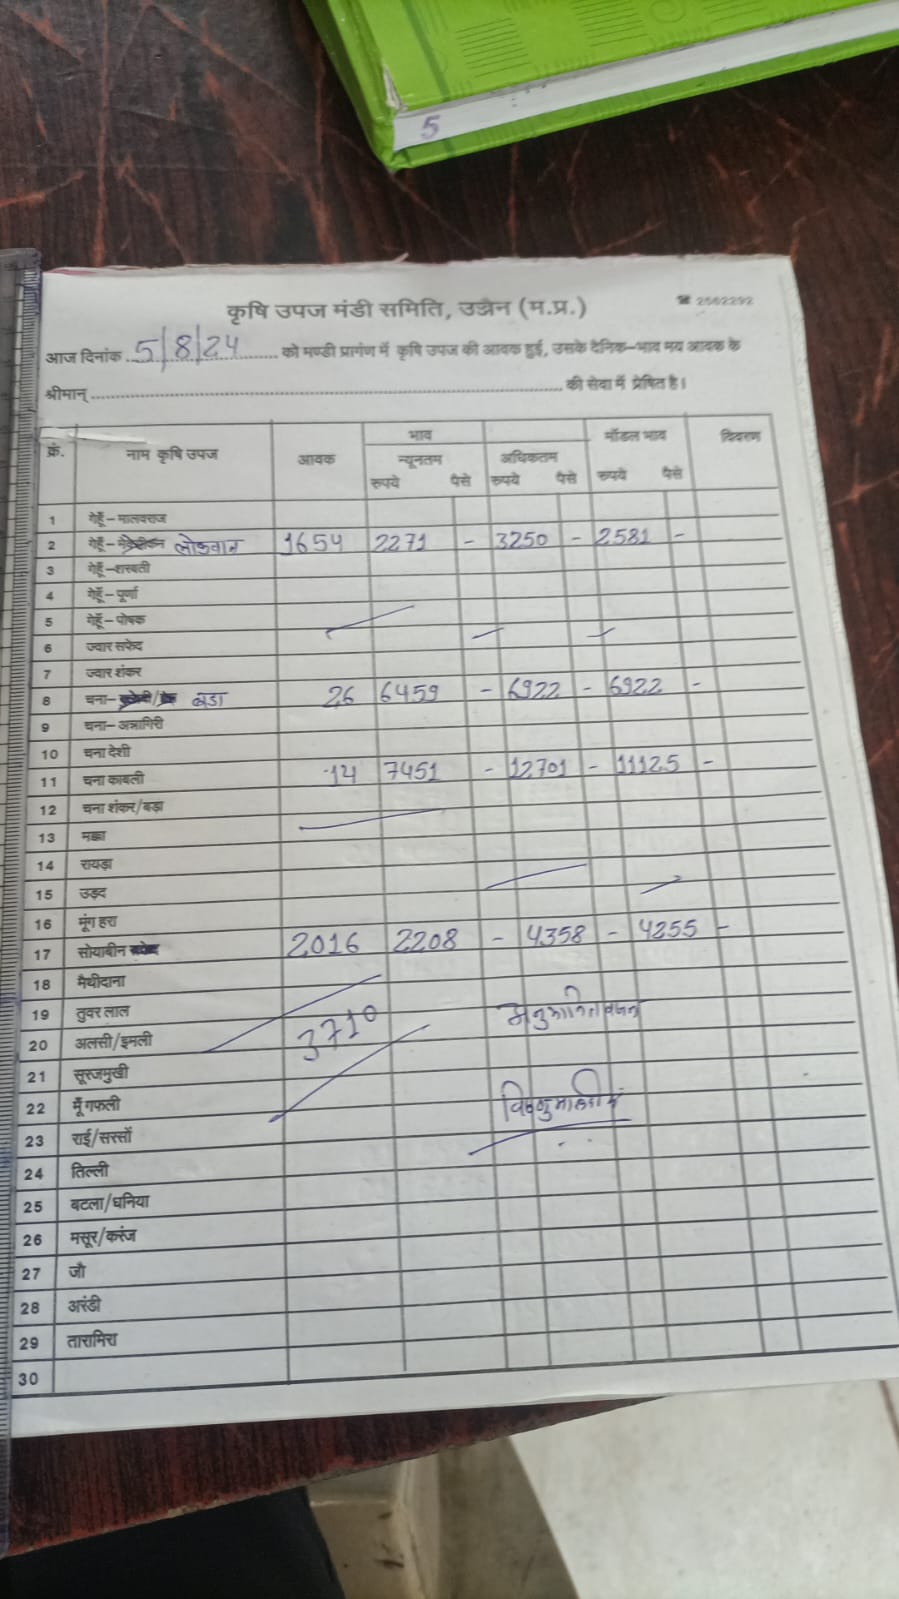 5
कृषि उपज मंडी समिति, उज्जैन (म.प्र.) ☎ 2562292
आज दिनांक 5/8/24 को मण्डी प्रागंण में कृषि उपज की आवक हुई, उसके दैनिक-भाव मय आवक के
श्रीमान् की सेवा में प्रेषित है।
क्रं. नाम कृषि उपज आवक भाव न्यूनतम रुपये पैसे अधिकतम रुपये पैसे मॉडल भाव रुपये पैसे विवरण
1 गेहूँ-मालवराज
2 गेहूँ- लोकवान 1654 2271 - 3250 - 2581 -
3 गेहूँ-शरबती
4 गेहूँ-पूर्णा
5 गेहूँ-पोषक
6 ज्वार सफेद
7 ज्वार शंकर
8 चना- बडा 26 6459 - 6922 - 6922 -
9 चना-अन्नागिरी
10 चना देशी
11 चना काबली 14 7451 - 12701 - 11125 -
12 चना शंकर/बड़ा
13 मक्का
14 रायड़ा
15 उड़द
16 मूंग हरा
17 सोयाबीन 2016 2208 - 4358 - 4255 -
18 मैथीदाना
19 तुवर लाल
20 अलसी/इमली 3710
21 सूरजमुखी
22 मूँगफली
23 राई/सरसों
24 तिल्ली
25 बटला/धनिया
26 मसूर/करंज
27 जौ
28 अरंडी
29 तारामिरा
30